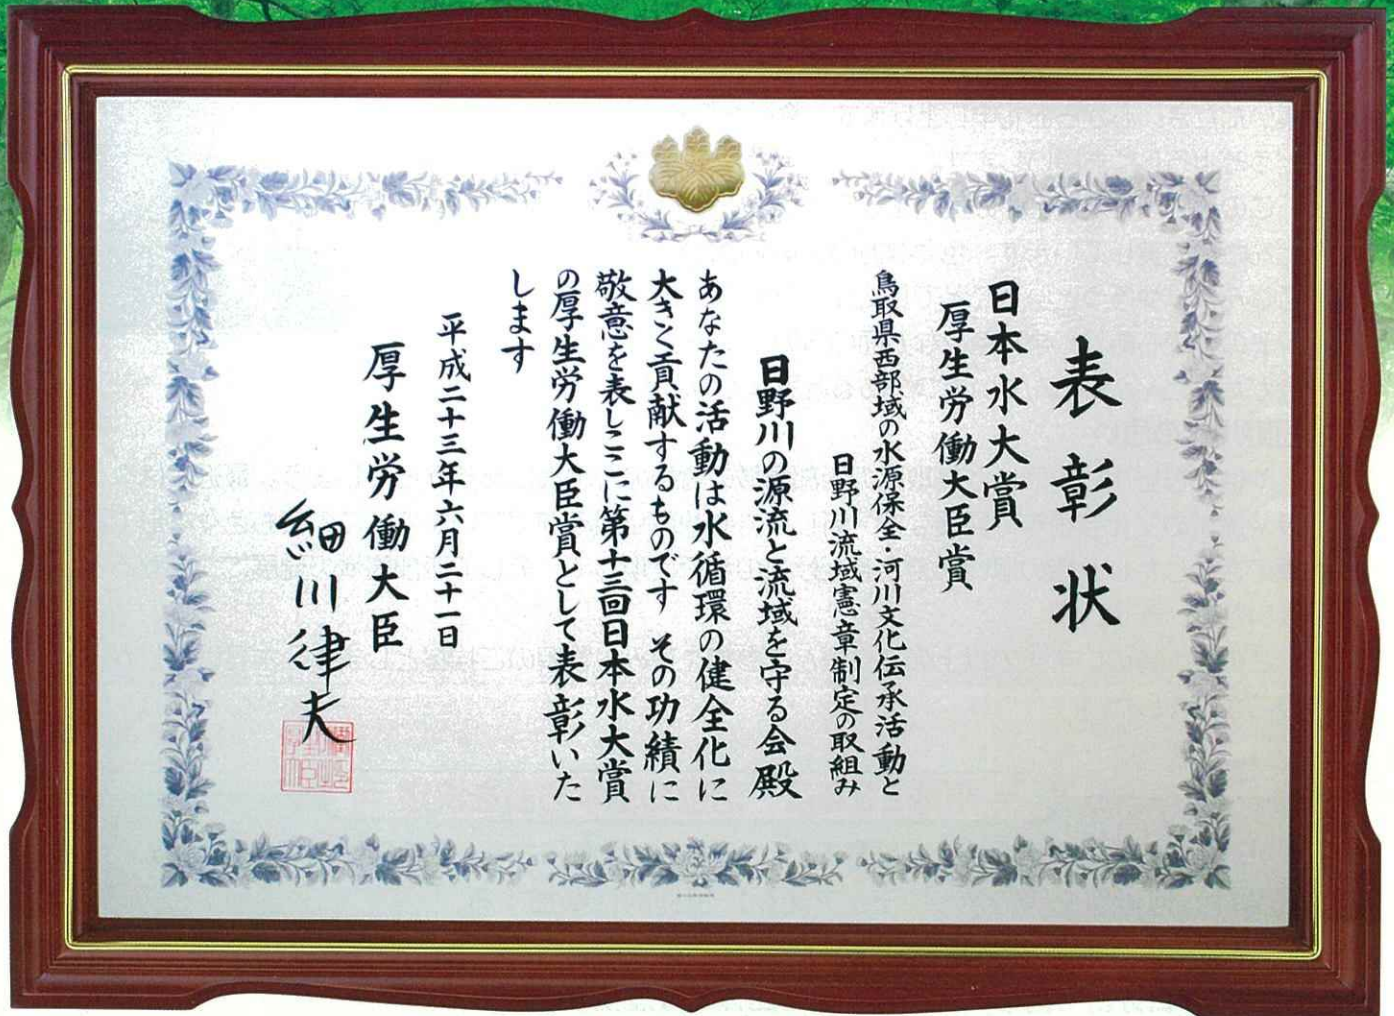 表彰状
日本水大賞
厚生労働大臣賞
鳥取県西部域の水源保全・河川文化伝承活動と
日野川流域憲章制定の取組み
日野川の源流と流域を守る会殿
あなたの活動は水循環の健全化に
大きく貢献するものです その功績に
敬意を表しここに第十三回日本水大賞
の厚生労働大臣賞として表彰いた
します
平成二十三年六月二十一日
厚生労働大臣
細川律夫